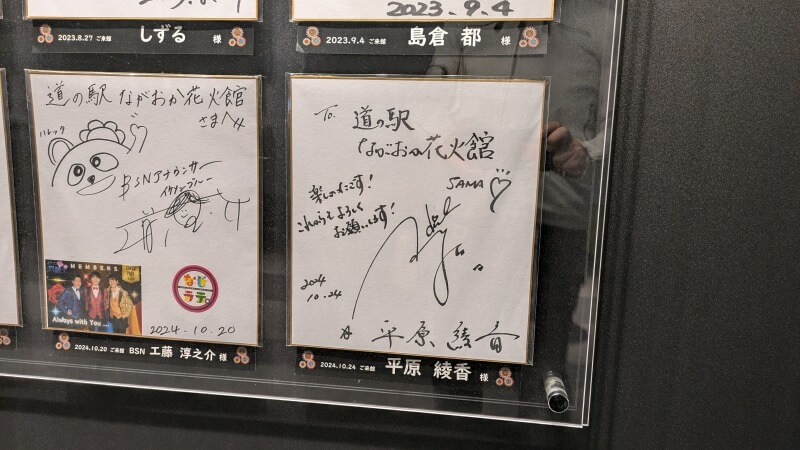 2023.9.4
2023.8.27 ご来館 しずる 様
2023.9.4 ご来館 島倉 都 様
道の駅 ながおか花火館
さまへ
BSNアナウンサー
MEMBERS
Always with You
なじラテ。
2024.10.20
2024.10.20 ご来館 BSN 工藤 淳之介 様
To. 道の駅
ながおか花火館
SAMA
楽しかったです!
これからもよろしく
お願いします!
2024
10.24
平原 綾香
2024.10.24 ご来館 平原 綾香 様